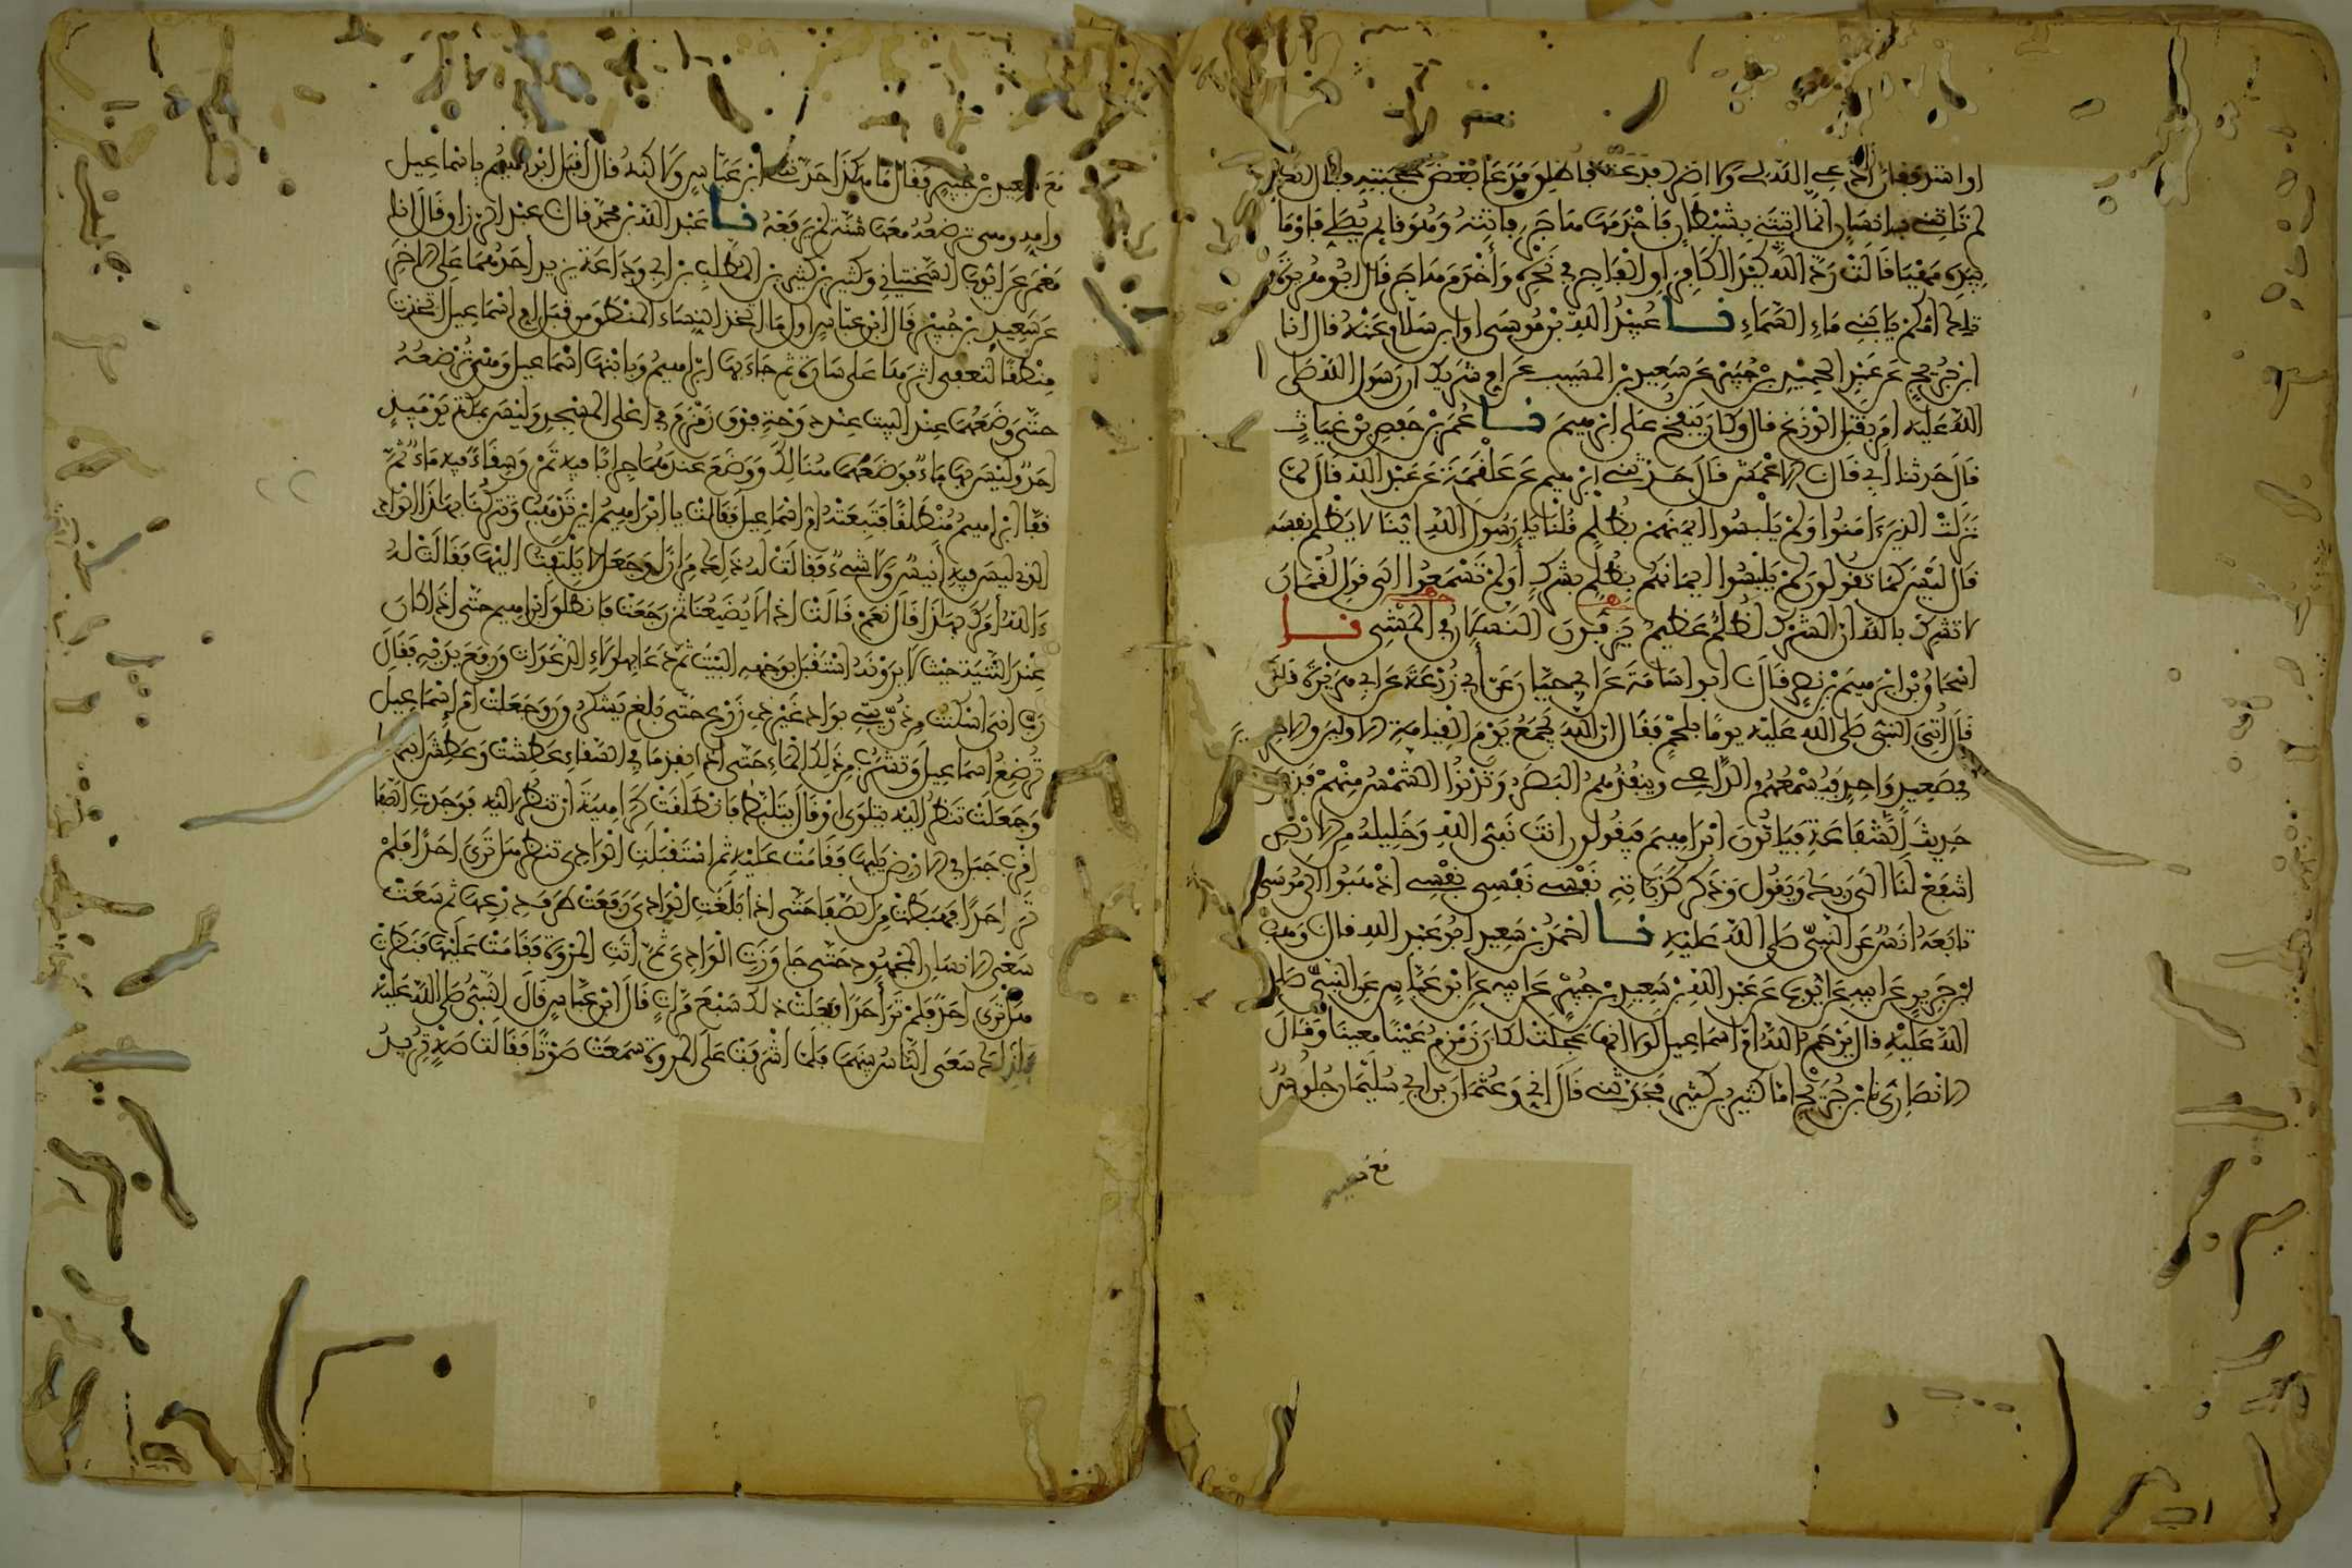 او اشد فقال ادعي الله لي ولا اضرك فدعت فاطلق فدعا بعض حجبته فقال انك
لم تاتني بانسان انما اتيتني بشيطان فاخدمها هاجر فاتته وهو قايم يصلي فاوما
بيده مهيا قالت رد الله كيد الكافر او الفاجر في نحره واخدم هاجر قال ابو هريرة
تلك امكم يا بني ماء السماء نا عبيد الله بن موسى او ابن سلام عنه قال انا
ابن جريج عن عبد الحميد بن جبير عن سعيد بن المسيب عن ام شريك ان رسول الله صلى
الله عليه امر بقتل الوزغ قال وكان ينفخ على ابرهيم نا عمر بن حفص بن غياث
قال حدثنا ابي قال الاعمش قال حدثني ابرهيم عن علقمة عن عبد الله قال لما
نزلت الذين ءامنوا ولم يلبسوا ايمنهم بظلم قلنا يا رسول الله اينا لا يظلم نفسه
قال ليس كما تقولون لم يلبسوا ايمانهم بظلم بشرك اولم تسمعوا الى قول لقمان
لا تشرك بالله ان الشرك لظلم عظيم يزفون النسلان في المشي نا
اسحاق بن ابرهيم بن نصر قال ابو اسامة عن ابي حيان عن ابي زرعة عن ابي هريرة قال
قال اتي النبي صلى الله عليه يوما بلحم فقال ان الله يجمع يوم القيامة الاولين والاخرين
في صعيد واحد فيسمعهم الداعي وينفذهم البصر وتدنوا الشمس منهم فذكر
حديث الشفاعة فياتون ابراهيم فيقولون انت نبي الله وخليله من الارض
اشفع لنا الى ربك ويقول وذكر كذباته نفسي نفسي نفسي اذهبوا الى موسى
تابعه انس عن النبي صلى الله عليه نا احمد بن سعيد ابو عبد الله قال وهب
ابن جرير عن ابيه عن ايوب عن عبد الله بن سعيد بن جبير عن ابيه عن ابن عباس عن النبي صلى
الله عليه قال يرحم الله ام اسماعيل لولا انها عجلت لكان زمزم عينا معينا وقال
الانصاري نا ابن جريج اما كثير بن كثير فحدثني قال اني وعثمان بن ابي سليمان جلوس
مع سعيد
مع سعيد بن جبير فقال ما هكذا حدثني ابن عباس ولاكنه قال اقبل ابرهيم باسماعيل
وامه وهي ترضعه معها شنة لم يرفعه نا عبد الله بن محمد قال عبد الرزاق قال انا
معمر عن ايوب السختياني وكثير بن كثير بن المطلب بن ابي وداعة يزيد احدهما على الاخر
عن سعيد بن جبير قال ابن عباس اول ما اتخذ النساء المنطق من قبل ام اسماعيل اتخذت
منطقا لتعفي اثرها على سارة ثم جاء بها ابراهيم وبابنها اسماعيل وهي ترضعه
حتى وضعهما عند البيت عند دوحة فوق زمزم في اعلى المسجد وليس بمكة يوميذ
احد وليس بها ماء فوضعهما هنالك ووضع عندهما جرابا فيه تمر وسقاء فيه ماء ثم
قفا ابراهيم منطلقا فتبعته ام اسماعيل فقالت يا ابراهيم اين تذهب وتتركنا بهذا الوادي
الذي ليس فيه انيس ولا شيء فقالت له ذلك مرارا وجعل لا يلتفت اليها فقالت له
ءالله امرك بهذا قال نعم قالت اذا لا يضيعنا ثم رجعت فانطلق ابراهيم حتى اذا كان
عند الثنية حيث لا يرونه استقبل بوجهه البيت ثم دعا بهولاء الدعوات ورفع يديه فقال
رب اني اسكنت من ذريتي بواد غير ذي زرع حتى بلغ يشكرون وجعلت ام اسماعيل
ترضع اسماعيل وتشرب من ذلك الماء حتى اذا نفد ما في السقاء عطشت وعطش ابنها
وجعلت تنظر اليه يتلوى او قال يتلبط فانطلقت كراهية ان تنظر اليه فوجدت الصفا
اقرب جبل في الارض يليها فقامت عليه ثم استقبلت الوادي تنظر هل ترى احدا فلم
تر احدا فهبطت من الصفا حتى اذا بلغت الوادي رفعت طرف درعها ثم سعت
سعي الانسان المجهود حتى جاوزت الوادي ثم اتت المروة فقامت عليها فنظرت
هل ترى احدا فلم تر احدا ففعلت ذلك سبع مرات قال ابن عباس قال النبي صلى الله عليه
فلذلك سعى الناس بينهما فلما اشرفت على المروة سمعت صوتا فقالت صه تريد